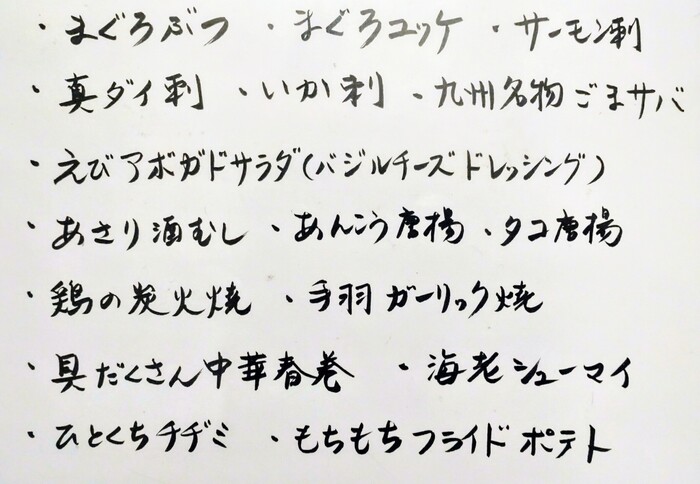 ・まぐろぶつ ・まぐろユッケ ・サーモン刺
・真ダイ刺 ・いか刺 ・九州名物ごまサバ
・えびアボガドサラダ(バジルチーズドレッシング)
・あさり酒むし ・あんこう唐揚 ・タコ唐揚
・鶏の炭火焼 ・手羽ガーリック焼
・具だくさん中華春巻 ・海老シューマイ
・ひとくちチヂミ ・もちもちフライドポテト